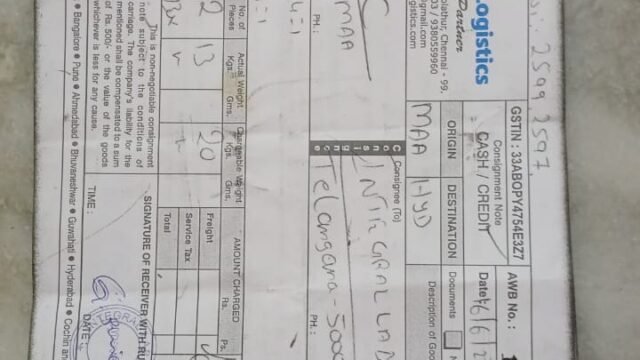 2599, 2597
Logistics
Partner
olathur, Chennai - 99.
03 / 9380559960
@gmail.com
gistics.com
GSTIN : 33ABOPY4754E3Z7
Consignment Note
CASH / CREDIT
AWB No. :
Date
ORIGIN
DESTINATION
MAA
HYD
Documents
Description of Goo
MAA
PH :
Consignee (To)
Telangana - 500
PH. :
No. of Pieces
Actual Weight
Kgs.
Gms.
Chargeable Weight
Kgs.
Gms.
AMOUNT CHARGED
Rs.
Ps.
2
13
20
Freight
Service Tax
Total
This is non-negotiable consignment
note subject to the conditions of
carriage. The company's liability for the
mentioned shall be compensated to a sum
of Rs. 500/- or the value of the goods
whichever is less for any cause.
SIGNATURE OF RECEIVER WITH RU
TIME :
DATE
● Bangalore ● Pune ● Ahmedabad ● Bhuvaneshwar ● Guwahati ● Hyderabad ● Cochin an